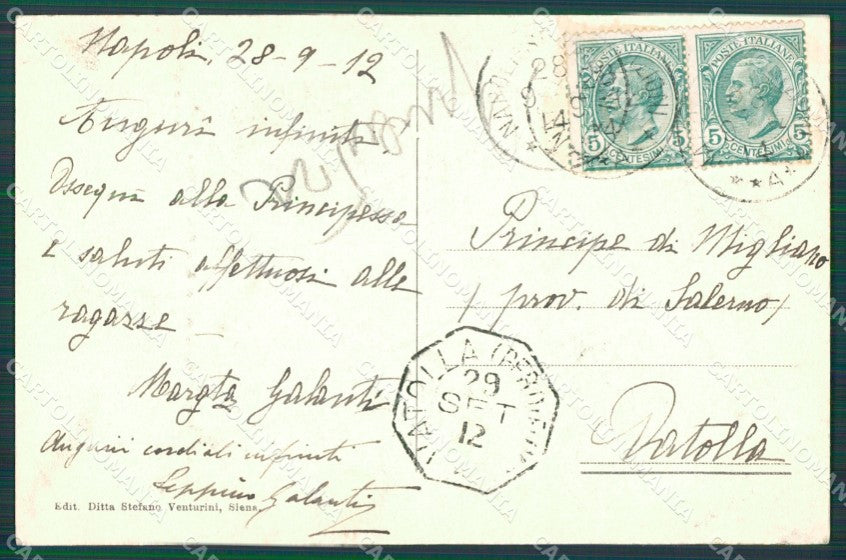 Napoli, 28-9-12
Auguri infiniti,
Ossequi alla Principessa
e saluti affettuosi alle
ragazze
Margta Galanti
Auguri cordiali infiniti
Peppino Galanti
Edit. Ditta Stefano Venturini, Siena.
POSTE ITALIANE
5 CENTESIMI 5
POSTE ITALIANE
5 CENTESIMI 5
NAPOLI
Principe di Migliano
(prov. di Salerno)
Vatolla
VATOLLA
29
SET
12
CARTOLINOMANIA